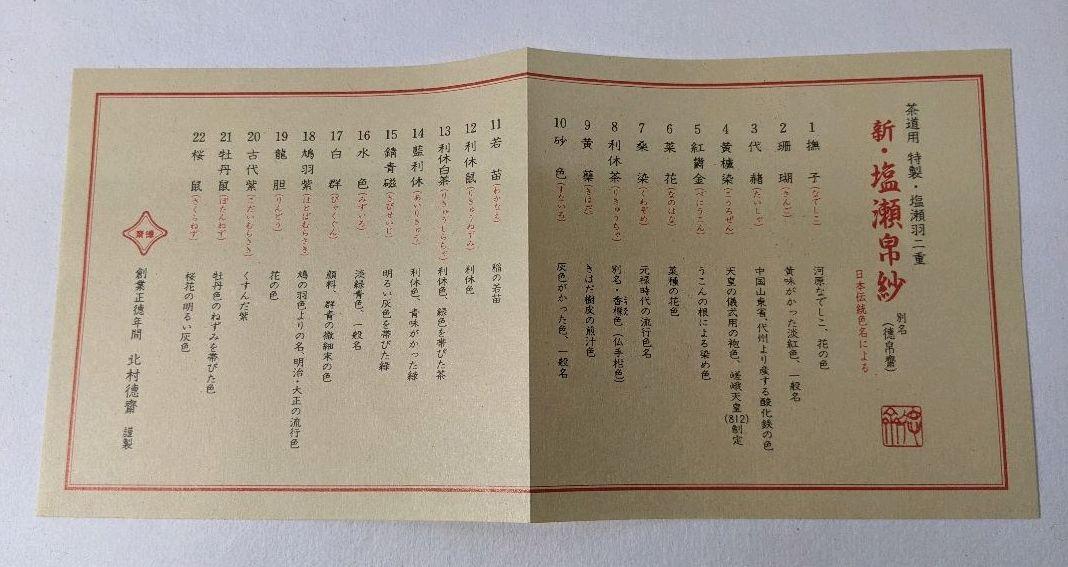 茶道用 特製・塩瀬羽二重
新・塩瀬帛紗
別名(徳帛齋)
日本伝統色名による
1 撫子(なでしこ) 河原なでしこ、花の色
2 珊瑚(さんご) 黄味がかった淡紅色、一般名
3 代赭(たいしゃ) 中国山東省、代州より産する酸化鉄の色
4 黄櫨染(こうろぜん) 天皇の儀式用の袍色、嵯峨天皇(812)制定
5 紅欝金(べにうこん) うこんの根による染め色
6 菜花(なのはな) 菜種の花色
7 桑染(くわぞめ) 元禄時代の流行色名
8 利休茶(りきゅうちゃ) 別名・香櫞色(仏手柑色)
9 黄蘗(きはだ) きはだ樹皮の煎汁色
10 砂色(すないろ) 灰色がかった色、一般名
11 若苗(わかなえ) 稲の若苗
12 利休鼠(りきゅうねずみ) 利休色
13 利休白茶(りきゅうしらちゃ) 利休色、緑色を帯びた茶
14 藍利休(あいりきゅう) 利休色、青味がかった緑
15 錆青磁(さびせいじ) 明るい灰色を帯びた緑
16 水色(みずいろ) 淡緑青色、一般名
17 白群(びゃくぐん) 顔料、群青の微細末の色
18 鳩羽紫(はとばむらさき) 鳩の羽色よりの名、明治・大正の流行色
19 龍胆(りんどう) 花の色
20 古代紫(こだいむらさき) くすんだ紫
21 牡丹鼠(ぼたんねず) 牡丹色のねずみを帯びた色
22 桜鼠(さくらねず) 桜花の明るい灰色
創業正徳年間 北村徳齋 謹製